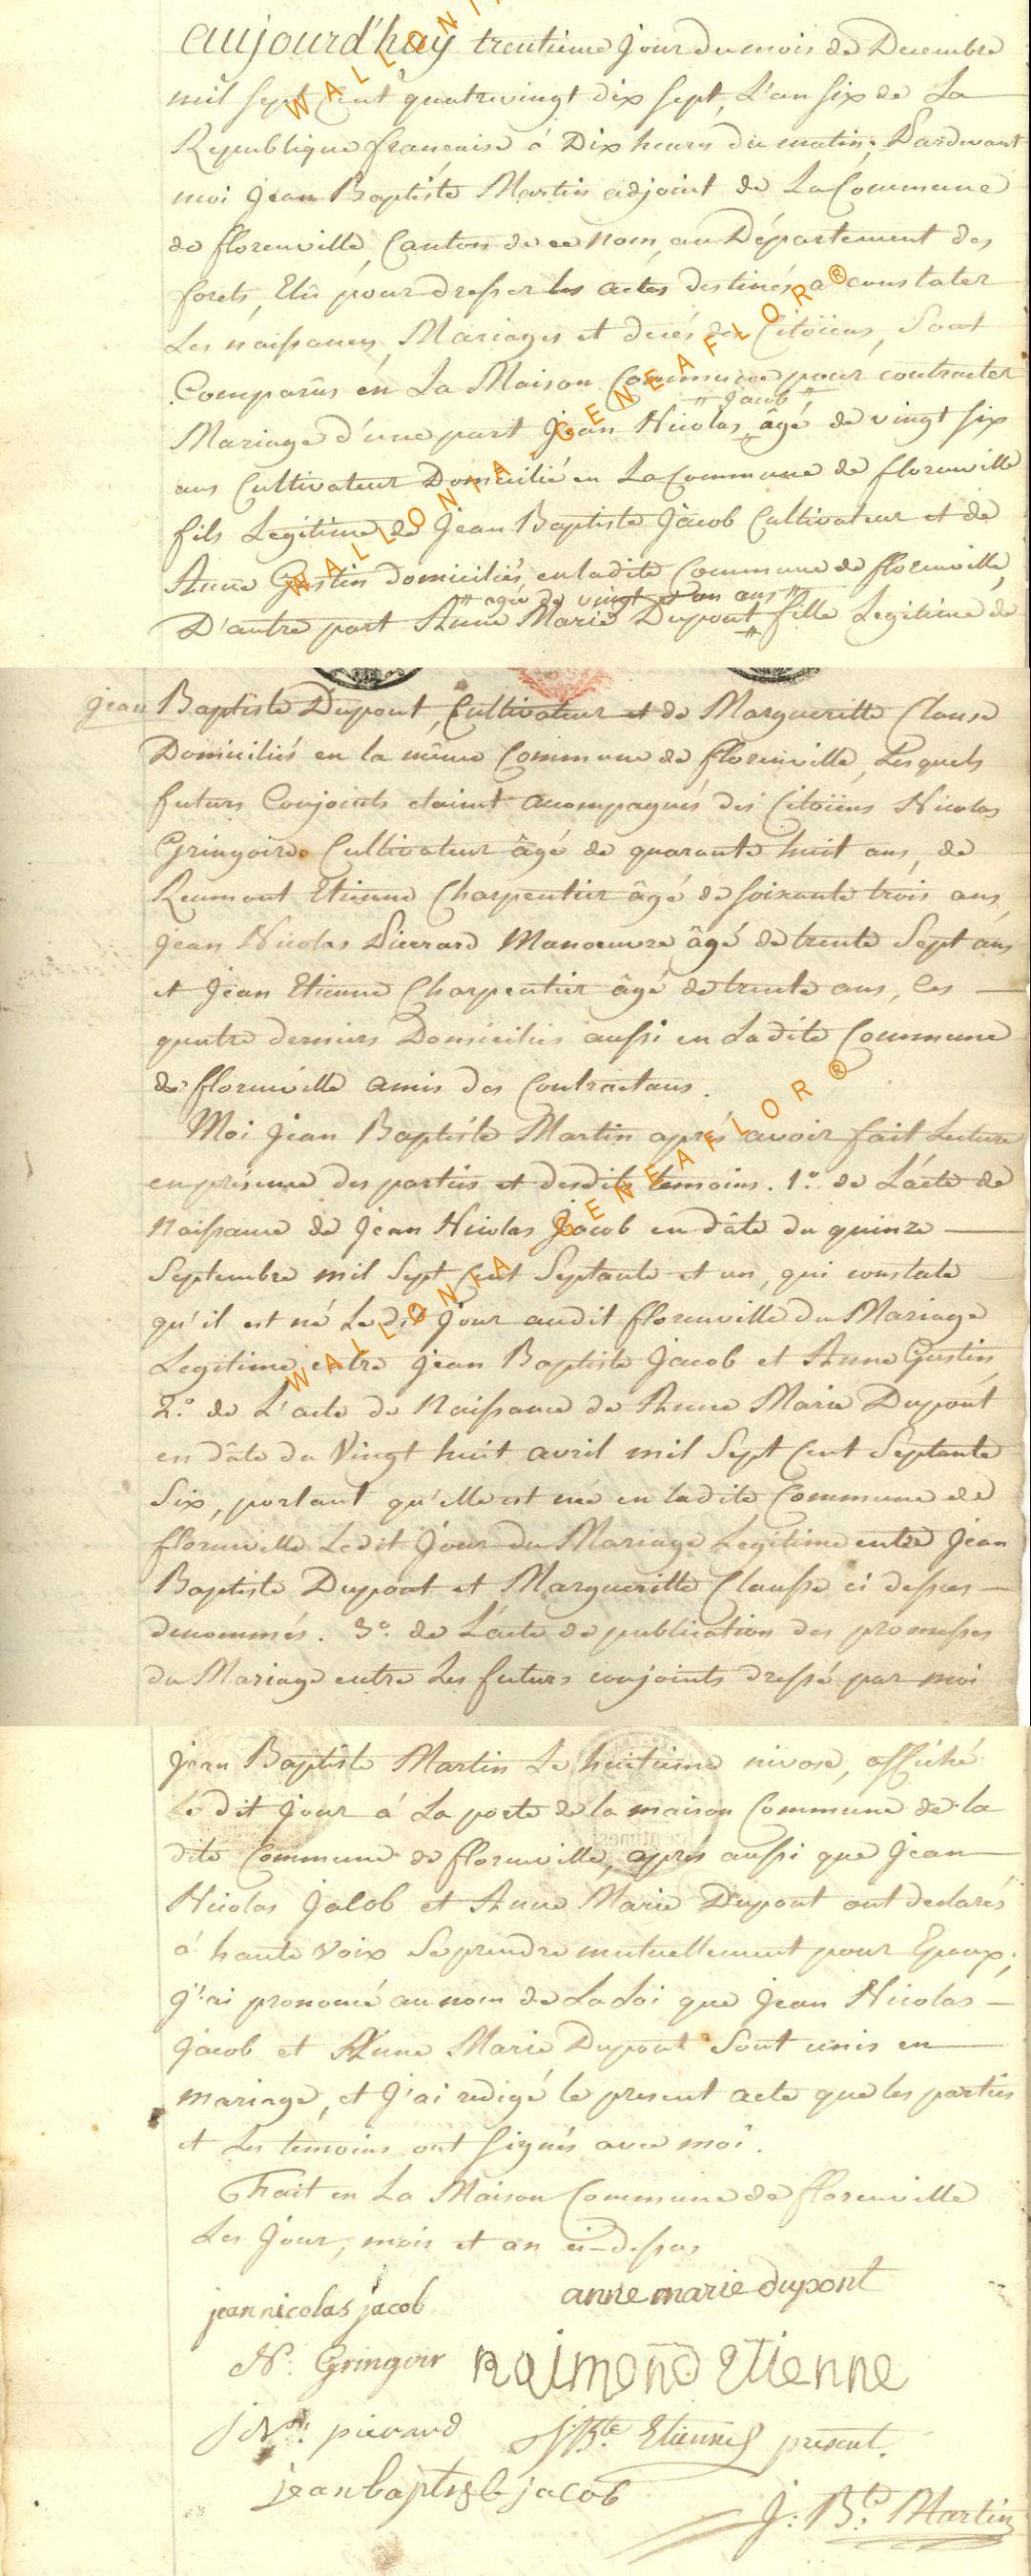 aujourd'huy trentieme jour du mois de Decembre
mil sept Cent quatrevingt dix sept, L'an six de La
Republique francaise á Dix heures du matin; Pardevant
moi Jean Baptiste Martin adjoint de La Commune
de florenville, Canton de ce nom, au Département des
forets, Elû pour dresser les actes destinés a constater
Les naissances, Mariages et decés des Citoïens, Sont
Comparûs en La Maison Commune pour contracter
" Jacob "
Mariage d'une part Jean Nicolas, âgé de vingt six
ans Cultivateur Domicilié en La Commune de florenville
fils Legitime de Jean Baptiste Jacob Cultivateur et de
Anne Gustin domiciliés, en ladite Commune de florenville,
" agée de vingt et un ans "
D'autre part Anne Marie Dupont fille Legitime de
jean Baptiste Dupont, Cultivateur et de Margueritte Clause
Domiciliés en la même Commune de florenville, Lesquels
futurs Conjoints etaint acompagnés des Citoïens Nicolas
Gringoire Cultivateur âgé de quarante huit ans, de
Reumont Etienne Charpentier âgé de soixante trois ans,
Jean Nicolas Pierrard Manoeuvre âgé de trente Sept ans
et Jean Etienne Charpentier âgé de trente ans, Les
quatre derniers Domiciliés aussi en Ladite Commune
de florenville amis des Contractans.
Moi Jean Baptiste Martin aprés avoir fait Lecture
en présence des parties et desdits temoins. 1.° de L'acte de
Naissance de Jean Nicolas Jacob en dâte du quinze
Septembre mil Sept Cent Septante et un, qui constate
qu'il est né Le dit jour audit florenville du Mariage
Legitime, entre Jean Baptiste Jacob et Anne Gustin,
2.° de L'acte de Naissance de Anne Marie Dupont
en dâte du Vingt huit avril mil Sept Cent Septante
Six, portant qu'elle est née en ladite Commune de
florenville Ledit Jour du Mariage Legitime entre Jean
Baptiste Dupont et Margueritte Clausse ci dessus
denommés. 3.° de L'acte de publication des promesses
du Mariage entre Les futurs conjoints dressé par moi
Jean Baptiste Martin Le huitieme nivose, affiché
Le dit Jour á La porte de la maison Commune de la
dite Commune de florenville, aprés aussi que Jean
Nicolas Jacob et Anne Marie Dupont ont declarés
á haute Voix Se prendre mutuellement pour Epoux;
J'ai prononcé au nom de La Loi que Jean Nicolas
Jacob et Anne Marie Dupont Sont unis en
mariage, et J'ai redigé le present acte que les parties
et Les temoins ont signés avec moi.
Fait en La Maison Commune de florenville
Les Jour, mois et an ci-dessus
jean nicolas jacob anne marie dupont
N: Gringoir Raimond Etienne
j Ns: pierard J Bte Etienne present.
jean baptiste jacob
J: Bte Martin
WALLONIA GENEAFLOR®
WALLONIA GENEAFLOR®